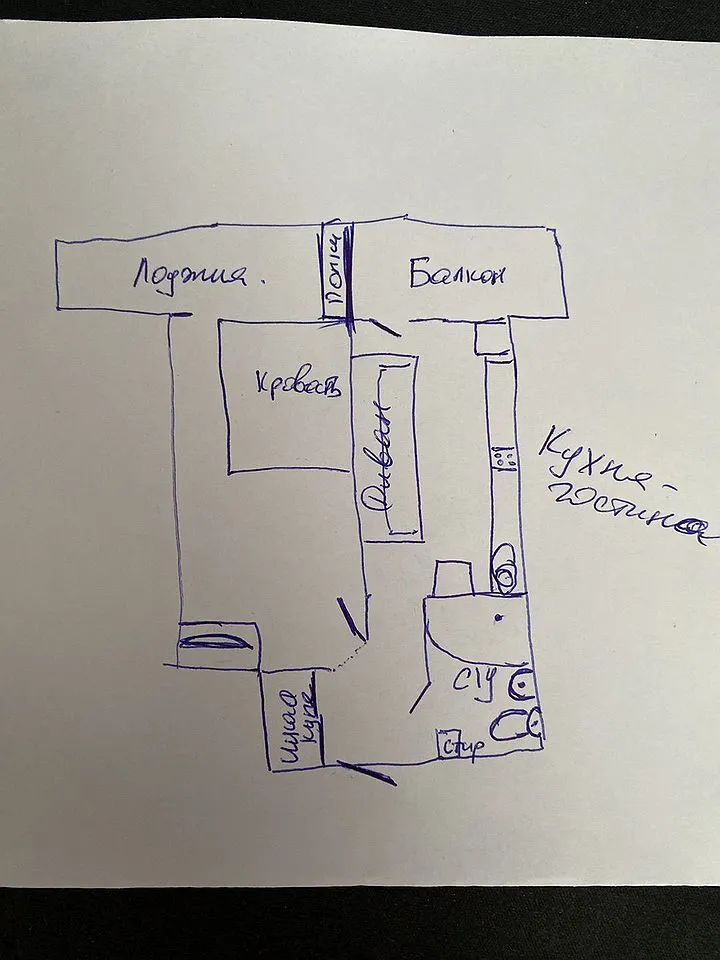 Лоджия.
Полки
Балкон
Кровать
Диван
Кухня-
гостиная
С/У
Шкаф
купе
Стир